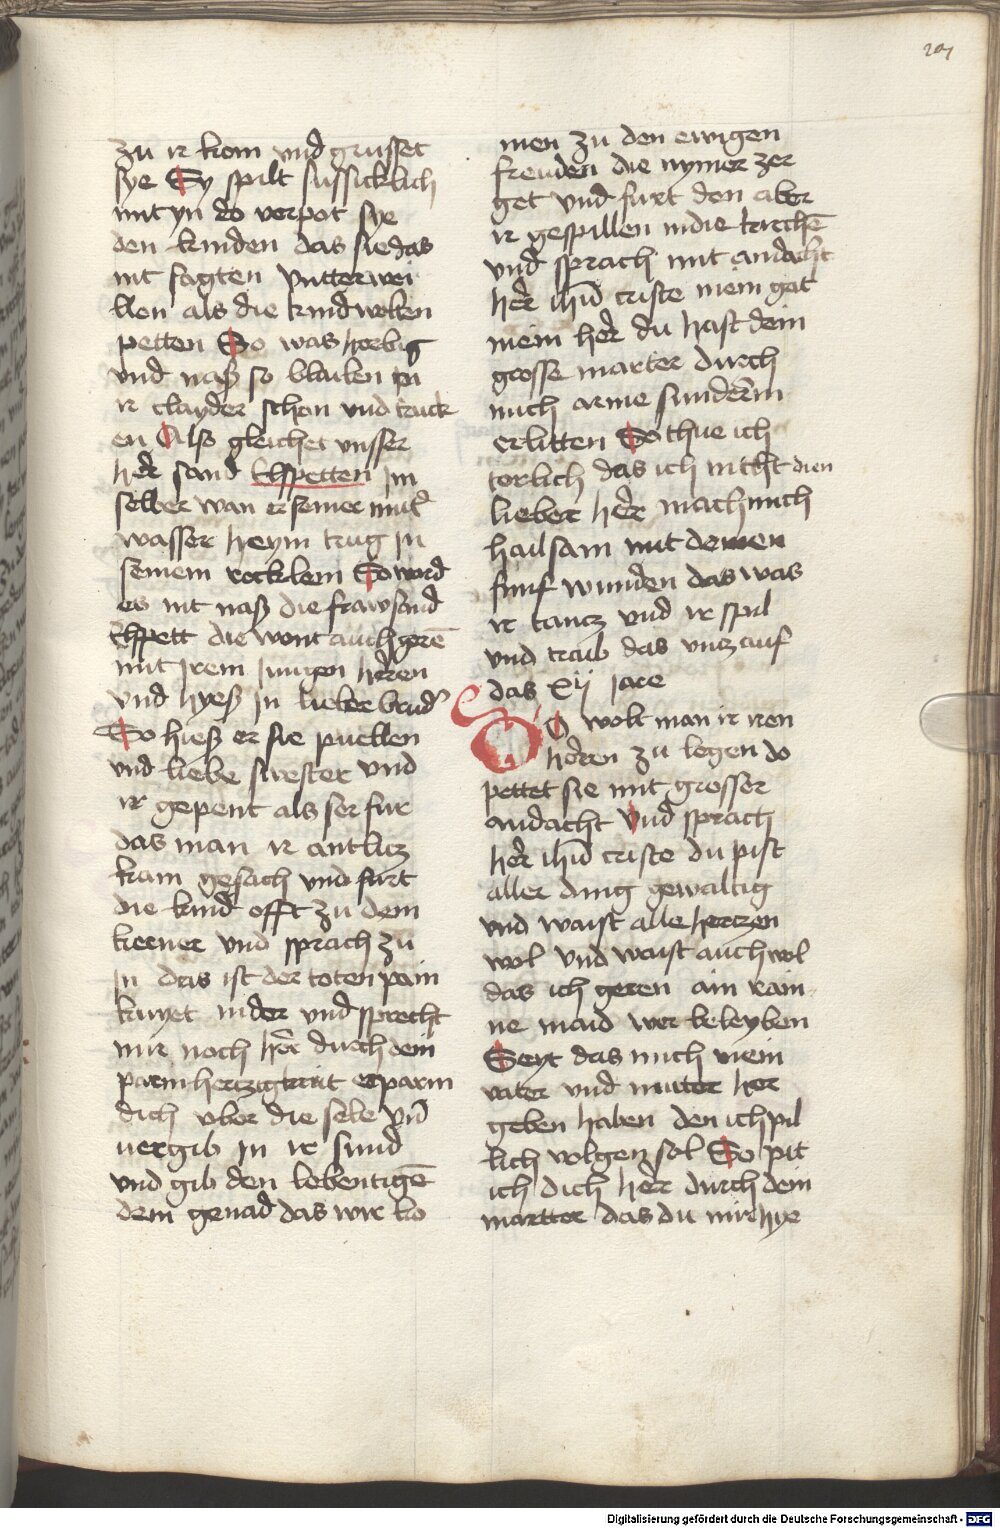 201
zu ir kom und grusset
sye Sy spilt sussicklich
mit yn do verpot sye
den kinden das sie das
nit sagten Unterwei
llen als die kind wolten
petten So was horbig
und naß so blaiben in
ir clayder schon und truck
en Also gleichet unsser
her sand Elspetten im
selber wan er seiner mut͛
wasser heym trug in
seinem rocklein So wird
es nit naß die fraw sand
Elspett die wont auch gerē
mit irem jungen herren
und hyeß in lieber brud͛
So hieß er sie puellen
und liebe swester und
ir gepent als ser fur
das man ir antlicz
kam gesach und furt
die kind offt zu dem
kerner und sprach zu
in das ist der toten pain
knyet nider und sprecht
mir noch her durch dein
parmherczigkeit erparm
dich uber die sele vn̄
uergib in ir sund
und gib den lebentigē
dein genad das wir ko
men zu den ewigen
freuden die nymer zer
get und furt den aber
ir gespillen in die kirchē
und sprach mit andacht
her ihū criste mein got
mein her du hast dein
grosse marter durch
mich arme sunderin
erlitten So thue ich
torlich das ich nitht dien
lieber her mach mich
hailsam mit deinen
funf wunden das was
ir tancz und ir spil
und traib das uncz auf
das xij jare
SO wolt man ir iren
herren zu legen do
pettet sie mit grosser
andacht Und sprach
her ihū criste du pist
aller ding gewaltig
und waist alle herczen
wol und waist auch wol
das ich geren ain rain
ne maid wer beleyben
Seyt das mich mein
vater und muter her
geben haben den ich pil
lich volgen sol So pit
ich dich her durch dein
martter das du mir hye
Digitalisierung gefördert durch die Deutsche Forschungsgemeinschaft - DFG